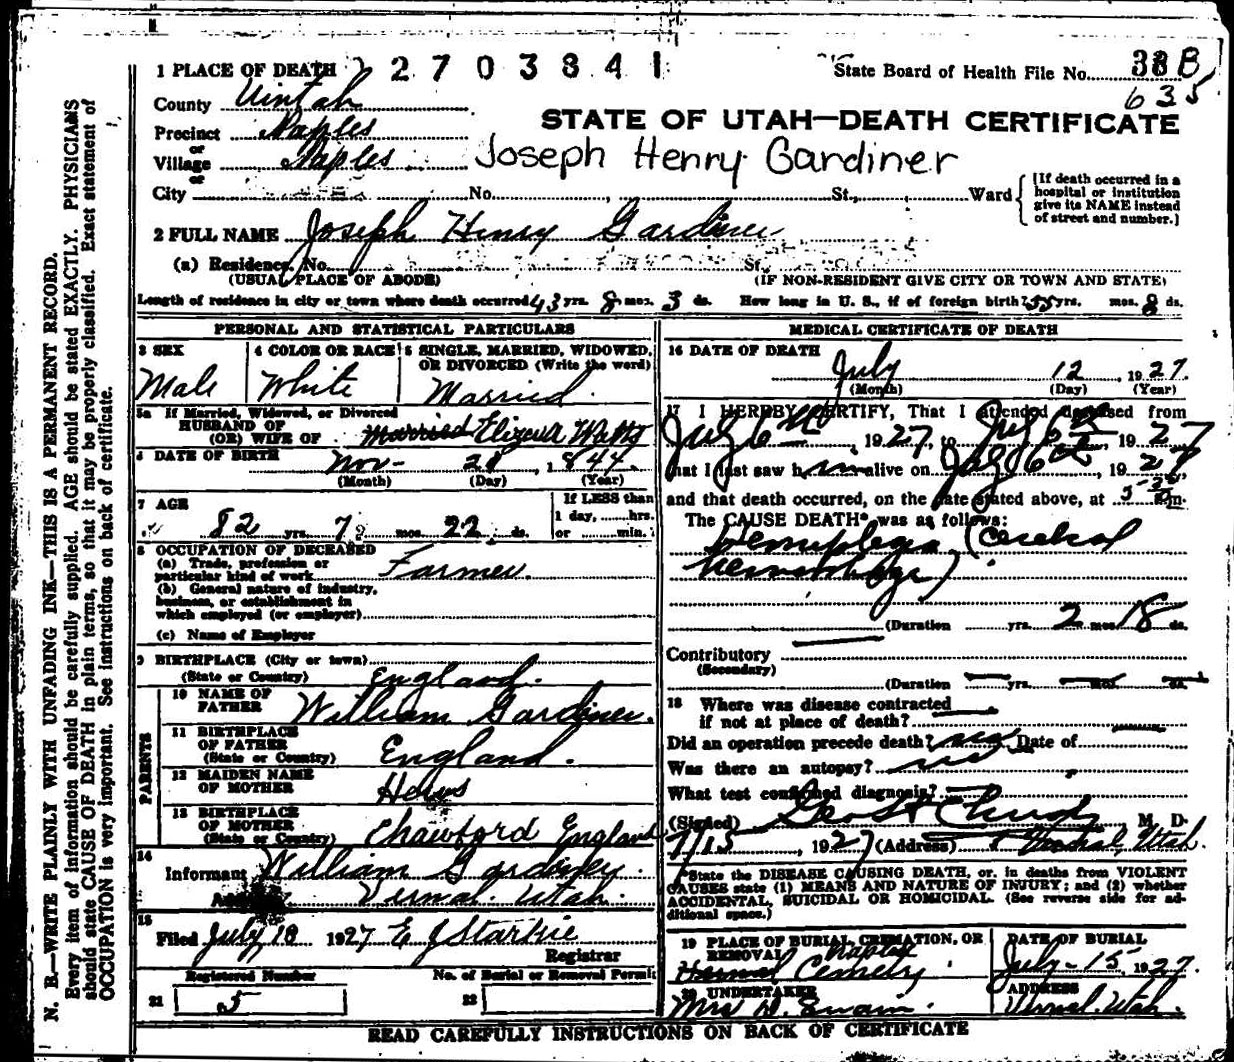 1 PLACE OF DEATH 2703841 State Board of Health File No. 33B
635
County Uintah
STATE OF UTAH—DEATH CERTIFICATE
Precinct Naples
or
Village Naples Joseph Henry Gardiner
or
City No. St., Ward {(If death occurred in a hospital or institution give its NAME instead of street and number.)
2 FULL NAME Joseph Henry Gardiner
(a) Residence. No. St.
(USUAL PLACE OF ABODE) (IF NON-RESIDENT GIVE CITY OR TOWN AND STATE)
Length of residence in city or town where death occurred 43 yrs. 8 mos. 3 ds. How long in U. S., if of foreign birth? 55 yrs. mos. 8 ds.
PERSONAL AND STATISTICAL PARTICULARS
3 SEX
Male
4 COLOR OR RACE
White
5 SINGLE, MARRIED, WIDOWED,
OR DIVORCED (Write the word)
Married
5a If Married, Widowed, or Divorced
HUSBAND OF
(OR) WIFE OF Married Watts
6 DATE OF BIRTH Nov- 20, 1844
(Month) (Day) (Year)
7 AGE
82 yrs. 7 mos. 22 ds.
If LESS than
1 day, hrs.
or min.
8 OCCUPATION OF DECEASED
(a) Trade, profession or
particular kind of work Farmer.
(b) General nature of industry,
business, or establishment in
which employed (or employer)
(c) Name of Employer
9 BIRTHPLACE (City or town)
(State or Country) England.
PARENTS
10 NAME OF
FATHER William Gardiner.
11 BIRTHPLACE
OF FATHER
(State or Country) England.
12 MAIDEN NAME
OF MOTHER
13 BIRTHPLACE
OF MOTHER
(State or Country) Chawford England
14
Informant William Gardiner.
Vernal. Utah.
15
Filed July 18 1927 E J Starkie
Registrar
Registered Number No. of Burial or Removal Permit
21 5 22
MEDICAL CERTIFICATE OF DEATH
16 DATE OF DEATH
July 12, 1927.
(Month) (Day) (Year)
17 I HEREBY CERTIFY, That I attended deceased from
July 6th, 1927, to July 6th, 1927
that I last saw him alive on July 6th, 1927
and that death occurred, on the date stated above, at m.
The CAUSE DEATH* was as follows:
Hemiplegia (Cerebral
hemorrhage).
(Duration yrs. 2 mos. 18 ds.
Contributory
(Secondary)
(Duration yrs. mos. ds.
18 Where was disease contracted
if not at place of death?
Did an operation precede death? no Date of
Was there an autopsy? no
What test confirmed diagnosis?
(Signed) M. D.
7/15, 1927 (Address) Vernal, Utah.
*State the DISEASE CAUSING DEATH, or, in deaths from VIOLENT
CAUSES state (1) MEANS AND NATURE OF INJURY; and (2) whether
ACCIDENTAL, SUICIDAL OR HOMICIDAL. (See reverse side for additional space.)
19 PLACE OF BURIAL, CREMATION, OR
REMOVAL Naples
Vernal Cemetery.
DATE OF BURIAL
July-15, 1927.
20 UNDERTAKER
Mrs D. Swain.
ADDRESS
Vernal. Utah.
READ CAREFULLY INSTRUCTIONS ON BACK OF CERTIFICATE
N. B.—WRITE PLAINLY WITH UNFADING INK—THIS IS A PERMANENT RECORD.
Every item of information should be carefully supplied. AGE should be stated EXACTLY. PHYSICIANS
should state CAUSE OF DEATH in plain terms, so that it may be properly classified. Exact statement of
OCCUPATION is very important. See instructions on back of certificate.